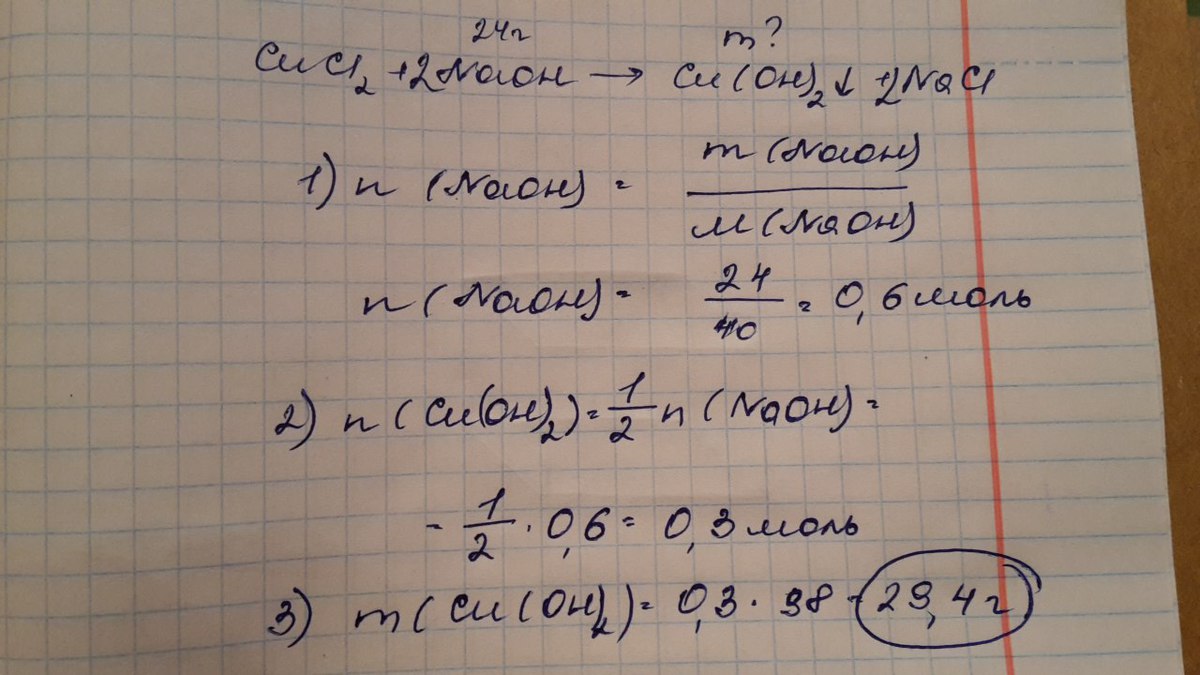 24г m?
CuCl₂ + 2NaOH → Cu(OH)₂↓ + 2NaCl
1) n (NaOH) = m (NaOH) / M (NaOH)
n (NaOH) = 24 / 40 = 0,6 моль
2) n (Cu(OH)₂) = 1/2 n (NaOH) =
= 1/2 · 0,6 = 0,3 моль
3) m (Cu(OH)₂) = 0,3 · 98 = 29,4 г